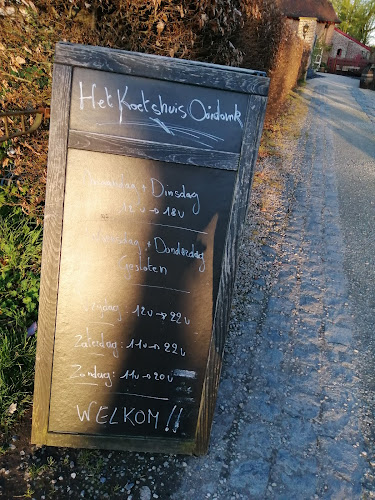 Het Koetshuis Oordonk
Maandag + Dinsdag
12u → 18u
Woensdag + Donderdag
Gesloten
Vrijdag: 12u → 22u
Zaterdag: 11u → 22u
Zondag: 11u → 20u
WELKOM!!